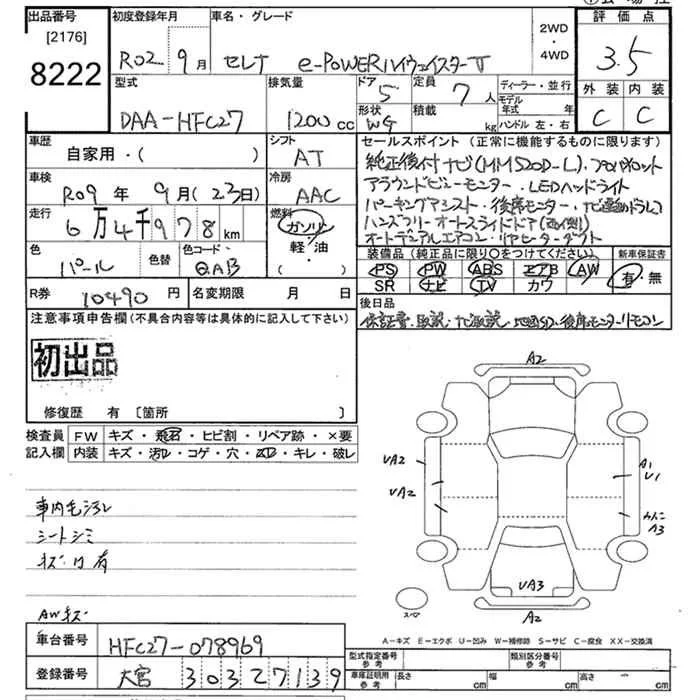 出品番号 初度登録年月 車名・グレード 2WD・4WD 評価点
[2176]
8222 R02年 9月 セレナ e-POWERハイウェイスターV 3.5
型式 排気量 ドア 定員 ディーラー・並行 外装 内装
DAA-HFC27 1200cc 5 7人 モデル年式 年 C C
形状 積載 ハンドル 左・右
WG kg
車歴 シフト セールスポイント(正常に機能するものに限ります)
自家用・( ) AT 純正後付ナビ(MM520D-L)、プロパイロット
車検 冷房 アラウンドビューモニター・LEDヘッドライト
R09年 9月(23日) AAC パーキングアシスト・後席モニター・ナビ連動ドラレコ
走行 燃料 ハンズフリーオートスライドドア(両側)
6万4千978km ガソリン オートデュアルエアコン・リヤヒーターダクト
軽・油
( )
色 色替 色コード 装備品(純正品に限り○をつけてください) 新車保証書
パール QAB PS PW ABS エアB AW 有・無
SR ナビ TV カワ
R券 10490円 名変期限 月 日 後日品
保証書、取説、ナビ取説、地図SD、後席モニターリモコン
注意事項申告欄(不具合内容等は具体的に記入して下さい)
初出品
修復歴 有 〔箇所 〕
検査員 FW キズ・飛石・ヒビ割・リペア跡・×要
記入欄 内装 キズ・汚レ・コゲ・穴・スレ・キレ・破レ
車内毛汚レ
シートシミ
AWキズ
A2
UA2
UA2
A1
U1
A3
UA3
A2
スペア
A-キズ E-エクボ U-凹み W-補修跡 S-サビ C-腐食 XX-交換済
車台番号 HFC27-078969
登録番号 大宮 303 2 7139
型式指定番号 参考 類別区分番号 参考
車庫証明用 参考 長さ cm 幅 cm 高さ cm